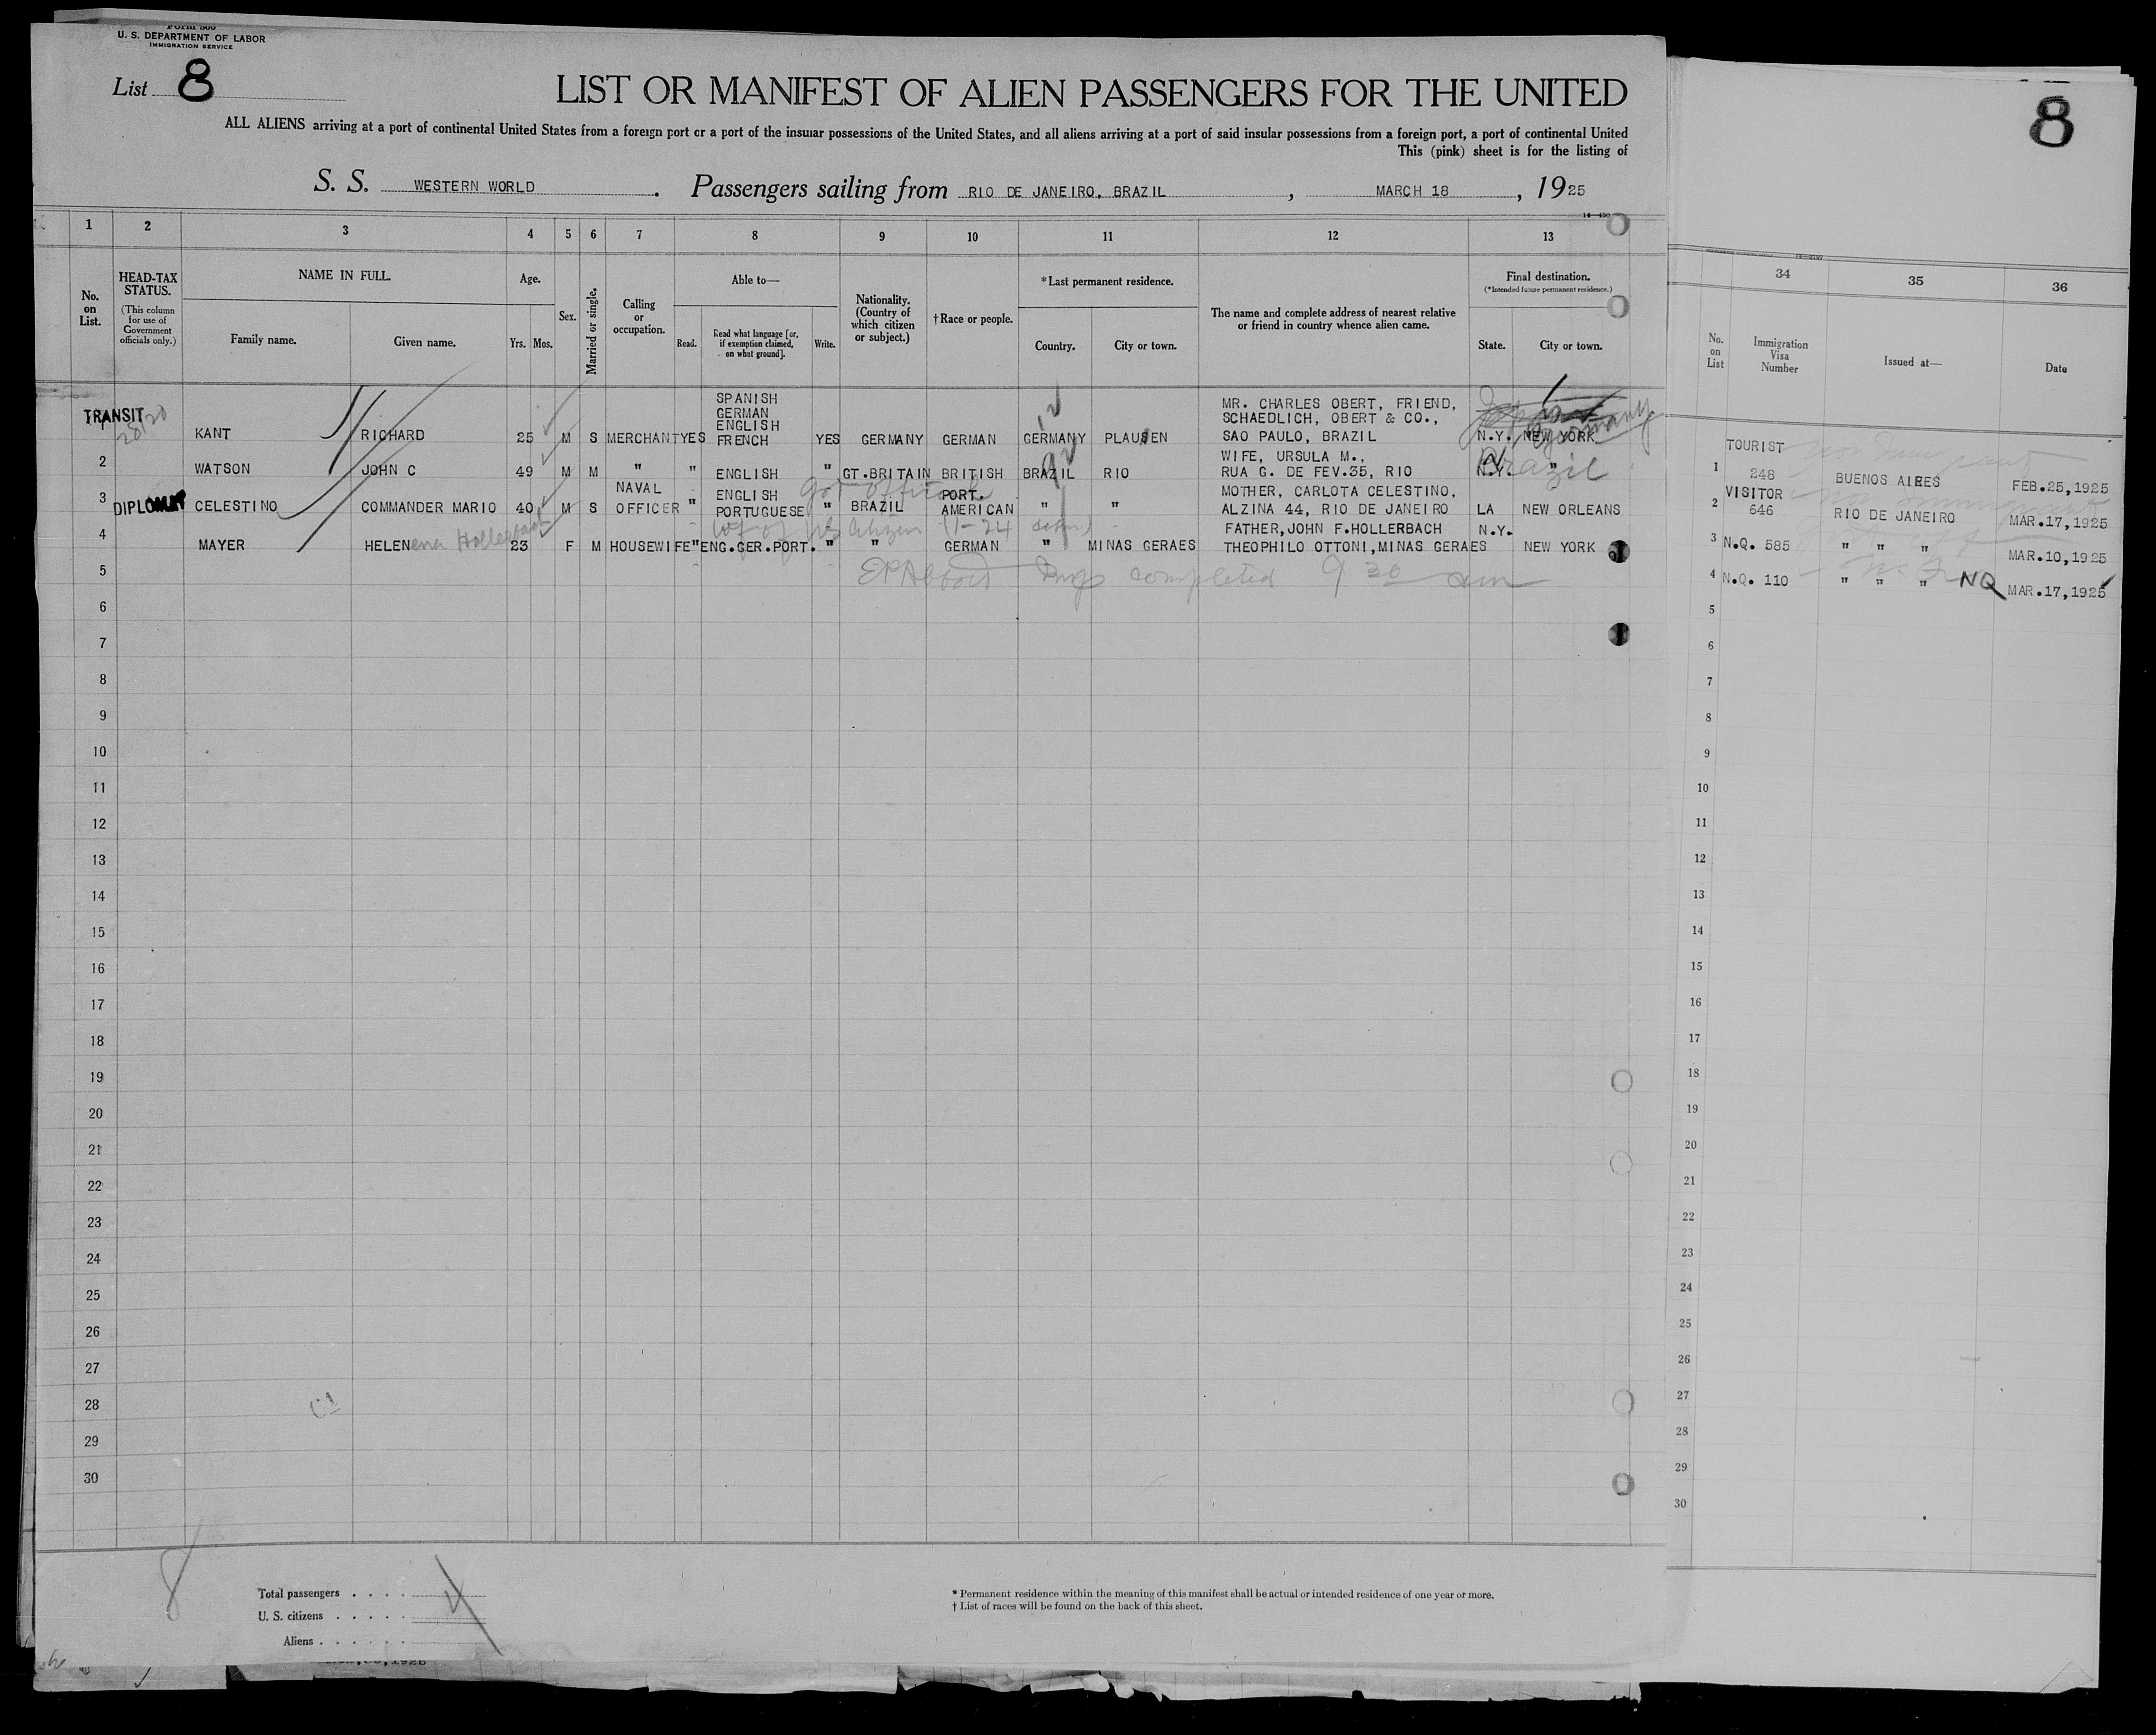 U. S. DEPARTMENT OF LABOR
IMMIGRATION SERVICE
List 8
LIST OR MANIFEST OF ALIEN PASSENGERS FOR THE UNITED
ALL ALIENS arriving at a port of continental United States from a foreign port or a port of the insular possessions of the United States, and all aliens arriving at a port of said insular possessions from a foreign port, a port of continental United
This (pink) sheet is for the listing of
S. S. WESTERN WORLD. Passengers sailing from RIO DE JANEIRO, BRAZIL, MARCH 18, 1925
8
1 2 3 4 5 6 7 8 9 10 11 12 13
No. on List.
HEAD-TAX STATUS.
(This column for use of Government officials only.)
NAME IN FULL.
Family name. Given name.
Age.
Yrs. Mos.
Sex.
Married or single.
Calling or occupation.
Able to—
Read. Read what language [or, if exemption claimed, on what ground]. Write.
Nationality. (Country of which citizen or subject.)
†Race or people.
*Last permanent residence.
Country. City or town.
The name and complete address of nearest relative or friend in country whence alien came.
Final destination.
(*Intended future permanent residence.)
State. City or town.
34 35 36
No. on List
Immigration Visa Number
Issued at—
Date
TRANSIT
SPANISH
GERMAN
ENGLISH
MR. CHARLES OBERT, FRIEND,
SCHAEDLICH, OBERT & CO.,
KANT RICHARD 25 M S MERCHANT YES FRENCH YES GERMANY GERMAN GERMANY PLAUSEN SAO PAULO, BRAZIL N.Y. NEW YORK
Germany
WIFE, URSULA M.,
2 WATSON JOHN C 49 M M " " ENGLISH " GT.BRITAIN BRITISH BRAZIL RIO RUA G. DE FEV.35, RIO N.Y. "
Brazil
NAVAL ENGLISH Gov official PORT. MOTHER, CARLOTA CELESTINO,
3 DIPLOMAT CELESTINO COMMANDER MARIO 40 M S OFFICER " PORTUGUESE " BRAZIL AMERICAN " " ALZINA 44, RIO DE JANEIRO LA NEW ORLEANS
wf of US Citizen
FATHER,JOHN F.HOLLERBACH N.Y.
4 MAYER HELENena Hollerbach 23 F M HOUSEWIFE " ENG.GER.PORT. " " GERMAN " MINAS GERAES THEOPHILO OTTONI,MINAS GERAES NEW YORK
completed 9 30 am
5
6
7
8
9
10
11
12
13
14
15
16
17
18
19
20
21
22
23
24
25
26
27
28
29
30
TOURIST
1 248 BUENOS AIRES FEB.25,1925
VISITOR
2 646 RIO DE JANEIRO MAR.17,1925
3 N.Q. 585 " " " MAR.10,1925
4 N.Q. 110 " " " NQ MAR.17,1925
5
6
7
8
9
10
11
12
13
14
15
16
17
18
19
20
21
22
23
24
25
26
27
28
29
30
8
Total passengers . . . . 4
U. S. citizens . . . . .
Aliens . . . . . .
* Permanent residence within the meaning of this manifest shall be actual or intended residence of one year or more.
† List of races will be found on the back of this sheet.